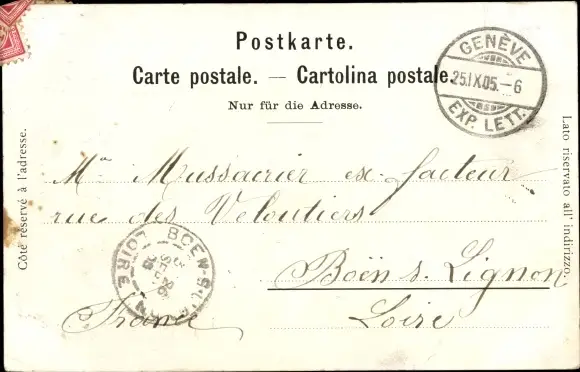 Postkarte.
Carte postale. — Cartolina postale.
Nur für die Adresse.
GENÈVE
25.IX.05.–6
EXP. LETT.
Côté réservé à l'adresse.
Lato riservato all' indirizzo.
Mr Mussacrier ex-facteur
rue des Veloutiers
Boën s. Lignon
Loire
France
BOEN-S-LIGNON
26
SEPT
05
LOIRE